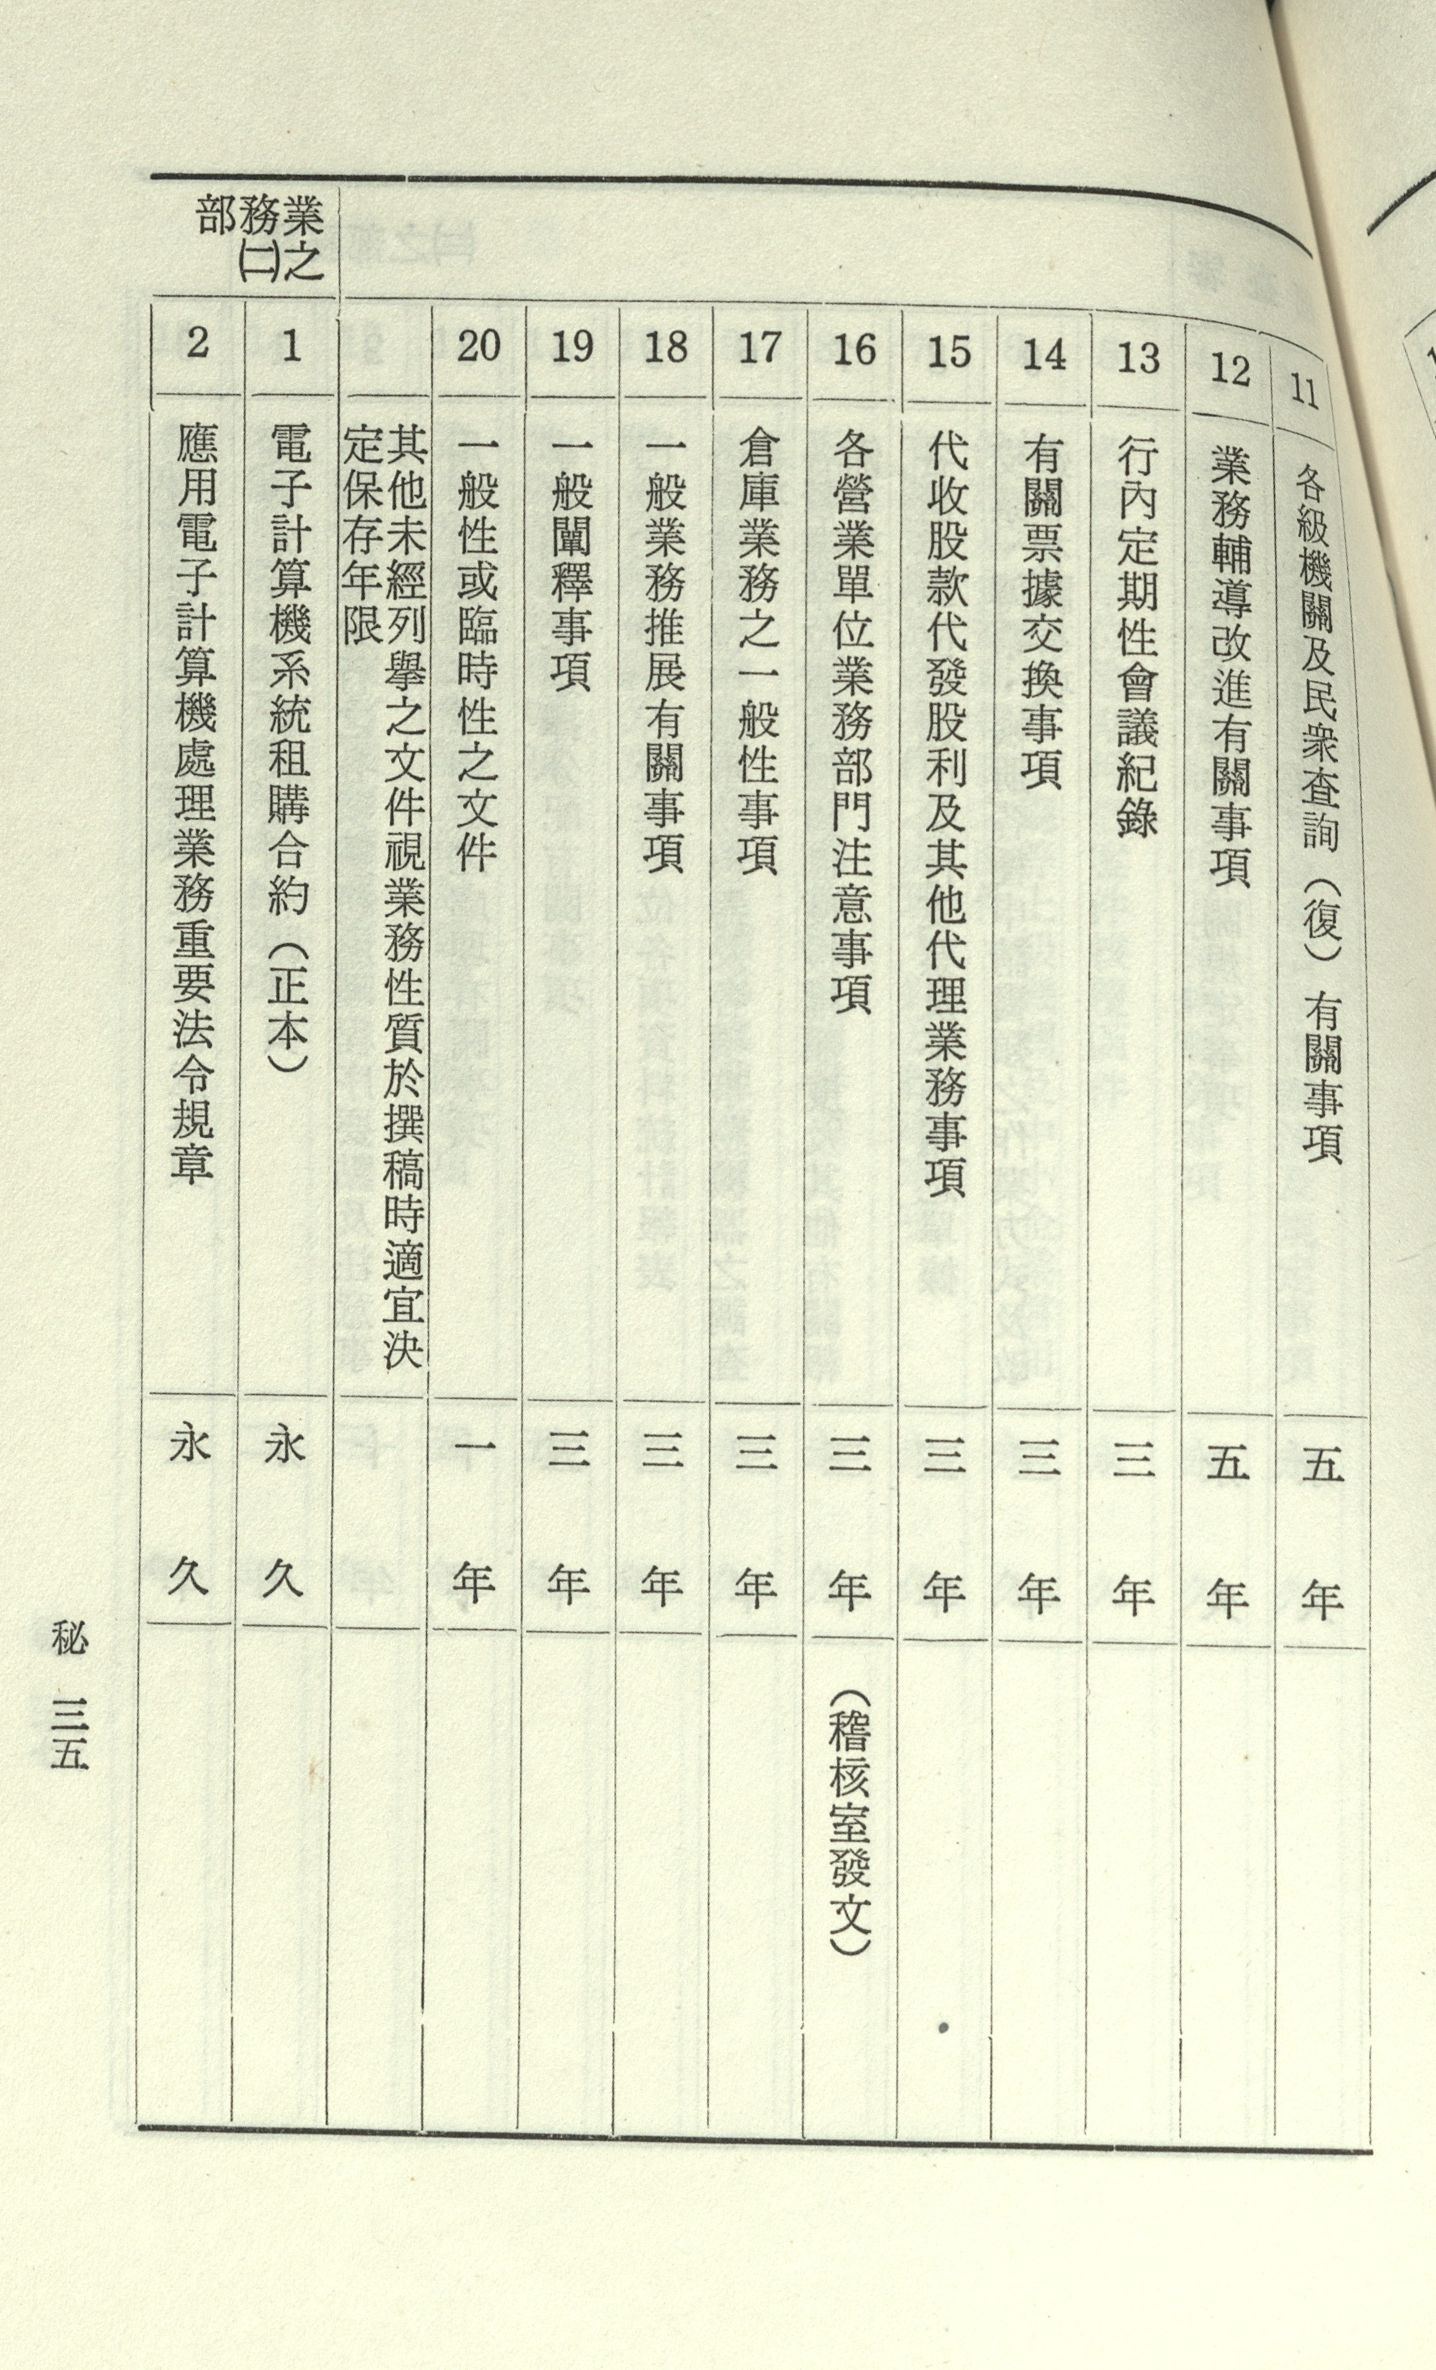 11
各級機關及民衆查詢（復）有關事項
五年
12
業務輔導改進有關事項
五年
13
行內定期性會議紀錄
三年
14
有關票據交換事項
三年
15
代收股款代發股利及其他代理業務事項
三年
16
各營業單位業務部門注意事項
三年
（稽核室發文）
17
倉庫業務之一般性事項
三年
18
一般業務推展有關事項
三年
19
一般闡釋事項
三年
20
一般性或臨時性之文件
一年
其他未經列舉之文件視業務性質於撰稿時適宜決
定保存年限
業之
務㈡
部
1
電子計算機系統租購合約（正本）
永久
2
應用電子計算機處理業務重要法令規章
永久
秘 三五